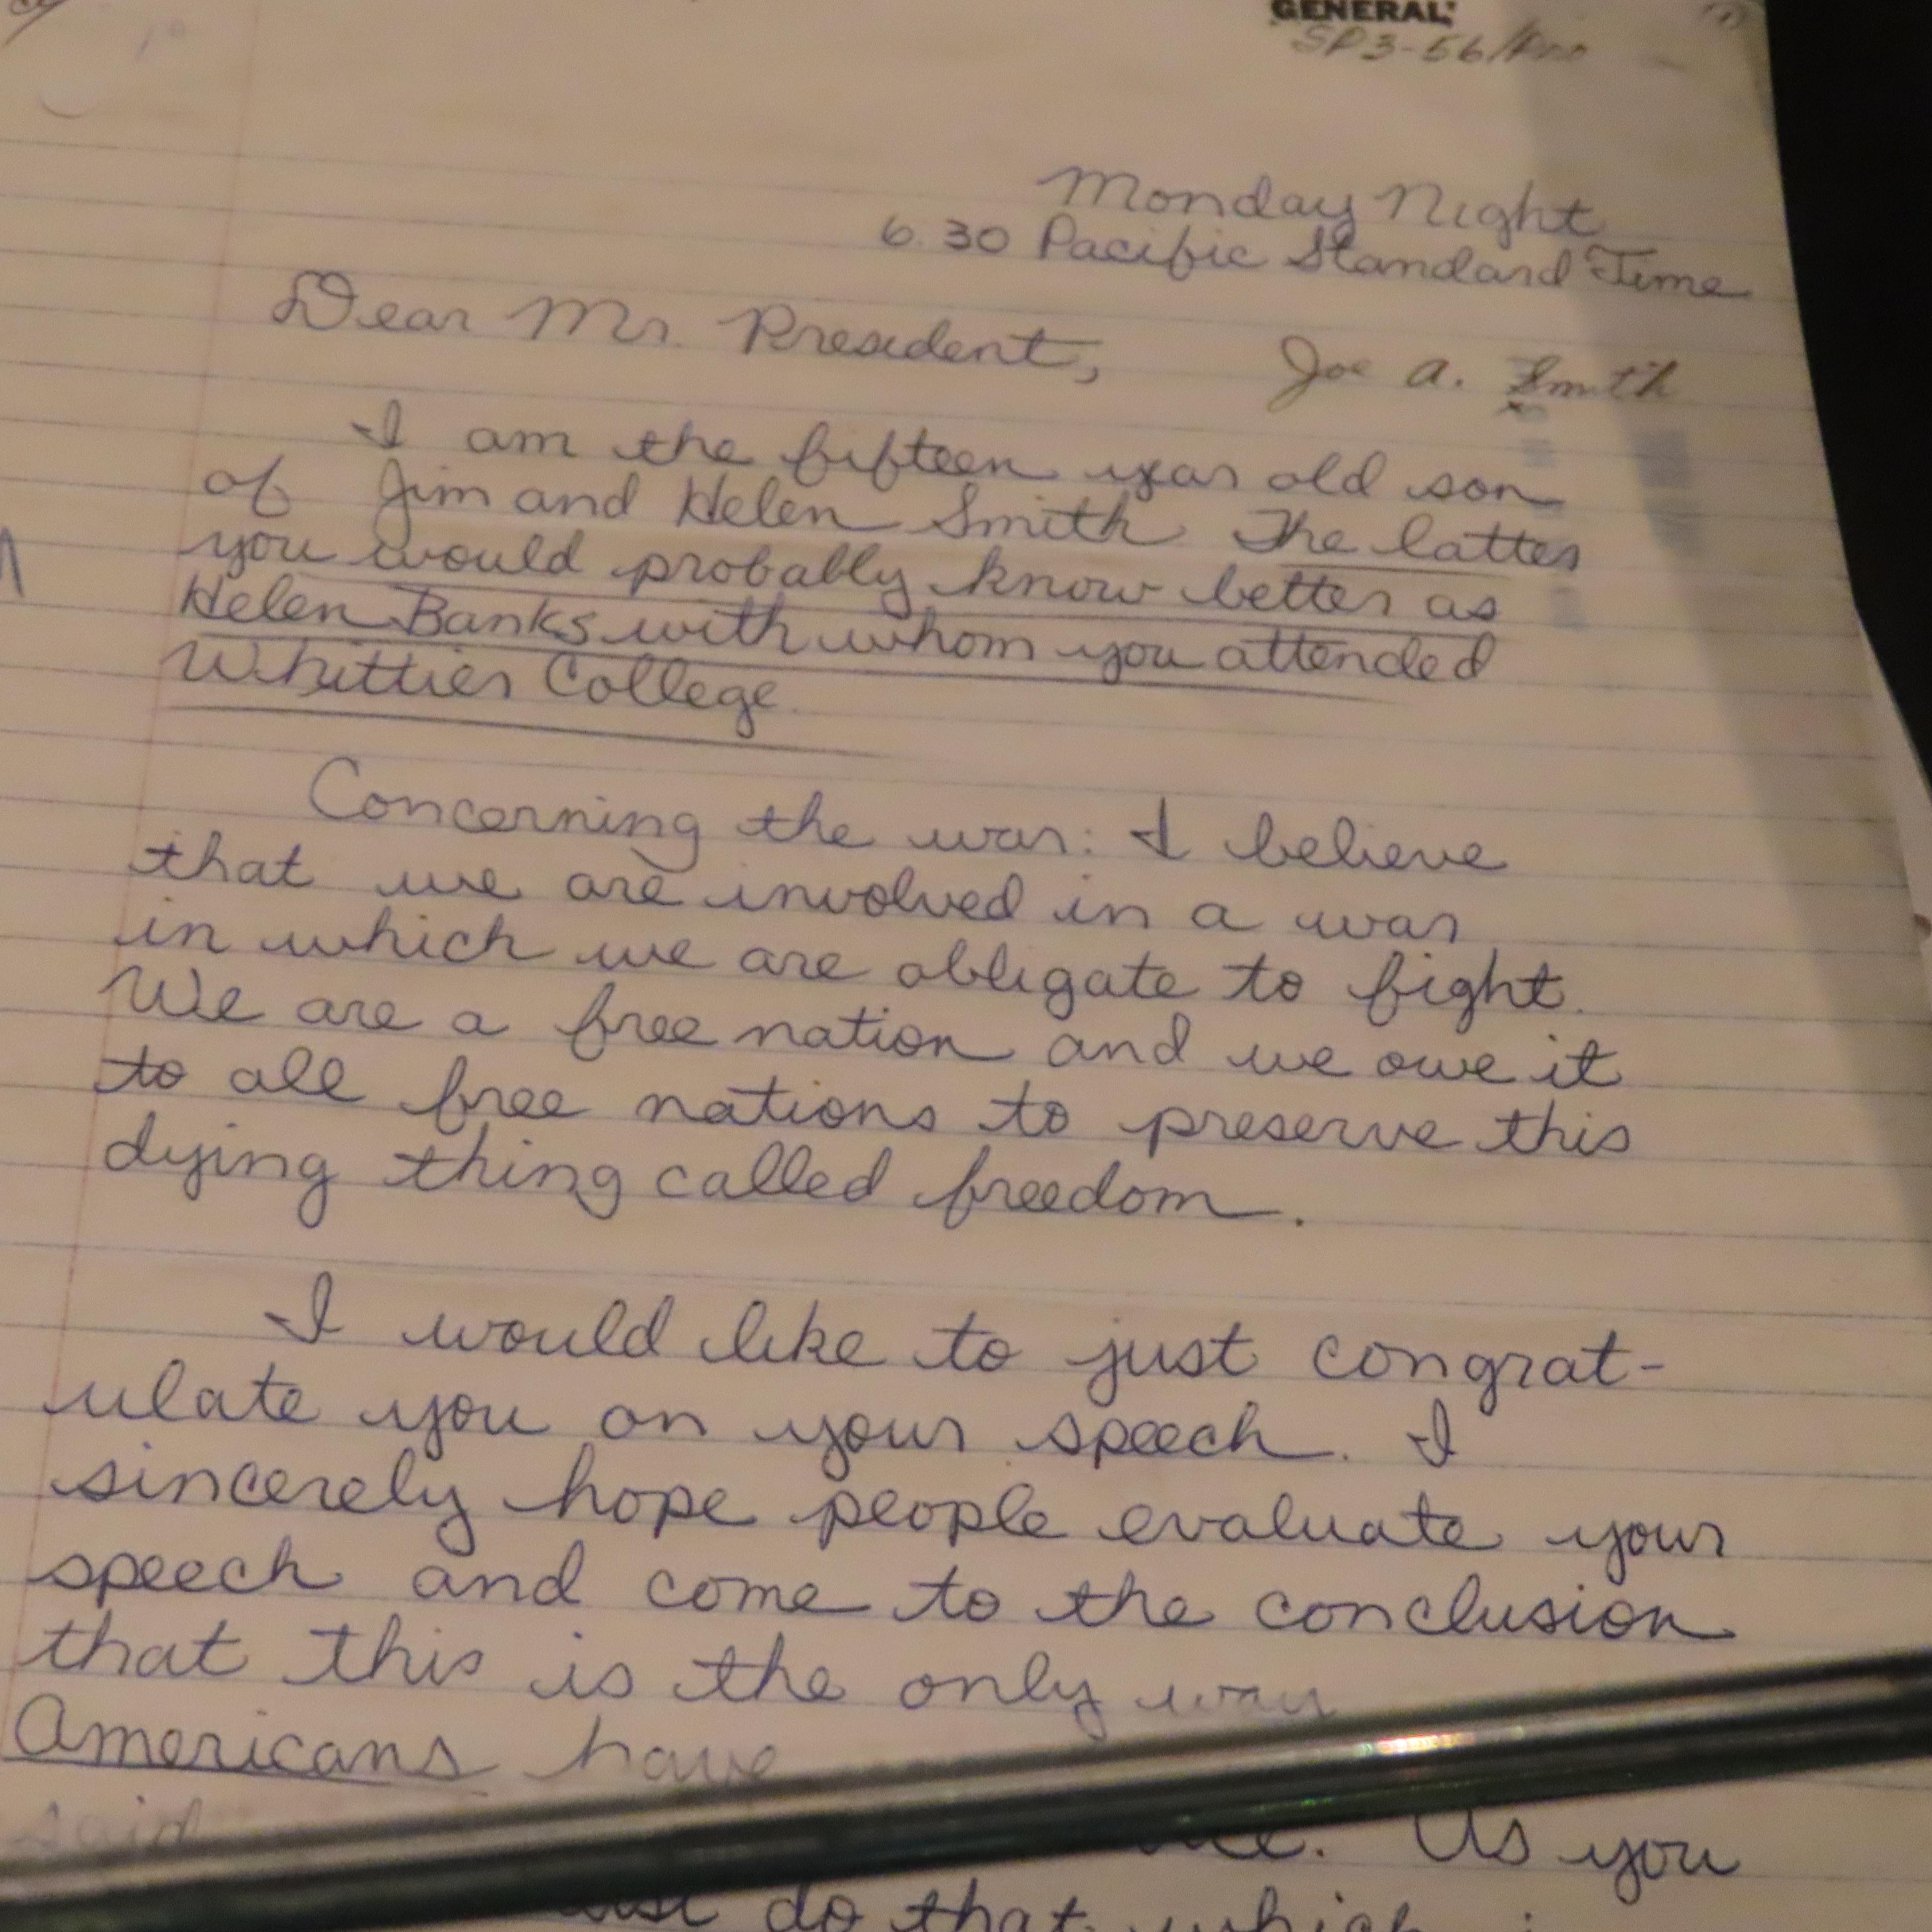 GENERAL
SP3-56/
Monday Night
6.30 Pacific Standard Time
Dear Mr. President,
Joe A. Smith
I am the fifteen year old son
of Jim and Helen Smith. The latter
you would probably know better as
Helen Banks with whom you attended
Whittier College.
Concerning the war: I believe
that we are involved in a war
in which we are obligate to fight.
We are a free nation and we owe it
to all free nations to preserve this
dying thing called freedom.
I would like to just congrat-
ulate you on your speech. I
sincerely hope people evaluate your
speech and come to the conclusion
that this is the only way
Americans have
said
As you
do that which